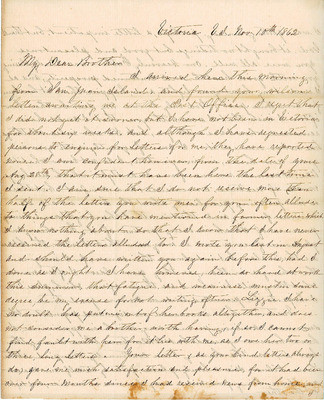 Victoria V.I. Nov. 10th 1862
My Dear Brother
I arrived here this morning
from San Juan Island and found your welcome
letter awaiting me at the Post Office. I regret that
I did not get it sooner but I have not been in Victoria
for some days, and although I have requested
persons to enquire for letters for me they have reported
none. I am confident however from the date of yours
Aug 28th that it must have been here the last time
I sent. I am sure that I do not receive more than
half of the letters you write me for you often allude
to things that you have mentioned in former letters which
I know nothing about. So that I know that I have never
received the letters alluded to. I wrote you last in August
and should have written you again before this had I
done as I ought. I have however been so hard at work
this summer that fatigue and weariness must in some
degree be my excuse for not writing oftener. Lizzie I have
no doubt has put me out of her books altogether and does
not consider me a brother worth having, if so I cannot
find fault with her for it lies with me as I owe her two or
three long letters. Your letter, as your kind letters always
do, gave me much satisfaction and pleasure for it had been
over four months since I had received news from home